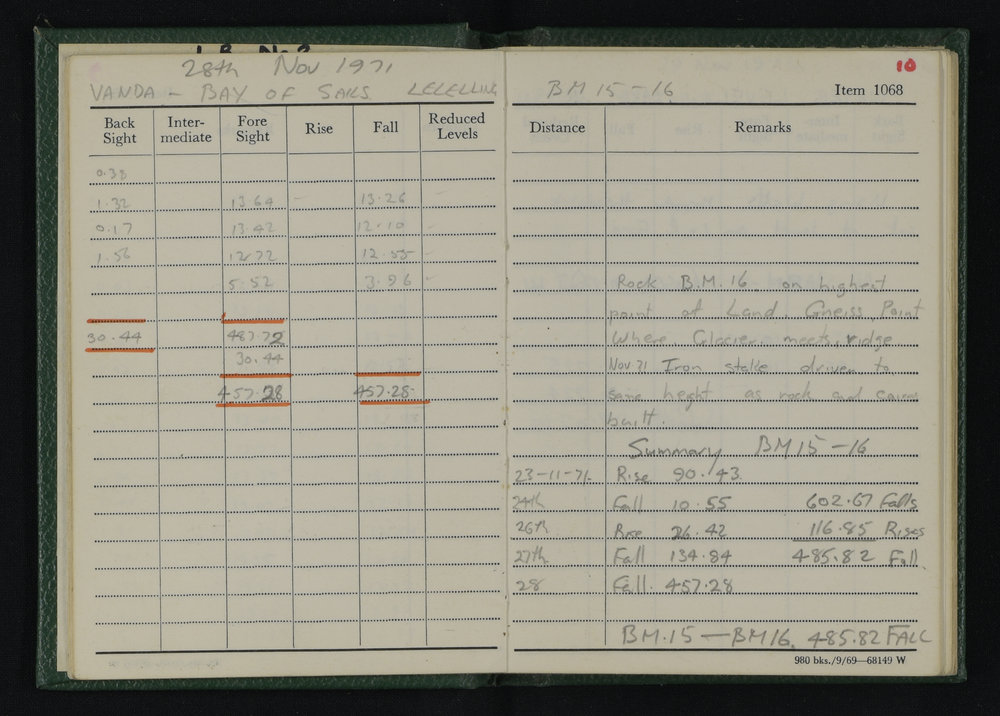 28th Nov 1971
VANDA - BAY OF SAILS LEVELLING
Back Sight Inter-mediate Fore Sight Rise Fall Reduced Levels
0.38
1.32 13.64 13.26
0.17 13.42 12.10
1.56 12.72 12.55
5.52 3.96
30.44 487.72
30.44
457.28 457.28
BM 15-16 Item 1068 10
Distance Remarks
Rock B.M. 16 on highest
point of Land Gneiss Point
Where Glacier meets ridge
Nov 71 Iron stake driven to
same height as rock and cairn
built.
Summary BM 15-16
23-11-71 Rise 90.43
24th Fall 10.55 602.67 Falls
26th Rise 26.42 116.85 Rises
27th Fall 134.84 485.82 Fall
28 Fall. 457.28
BM.15 — BM16. 485.82 FALL
980 bks./9/69—68149 W